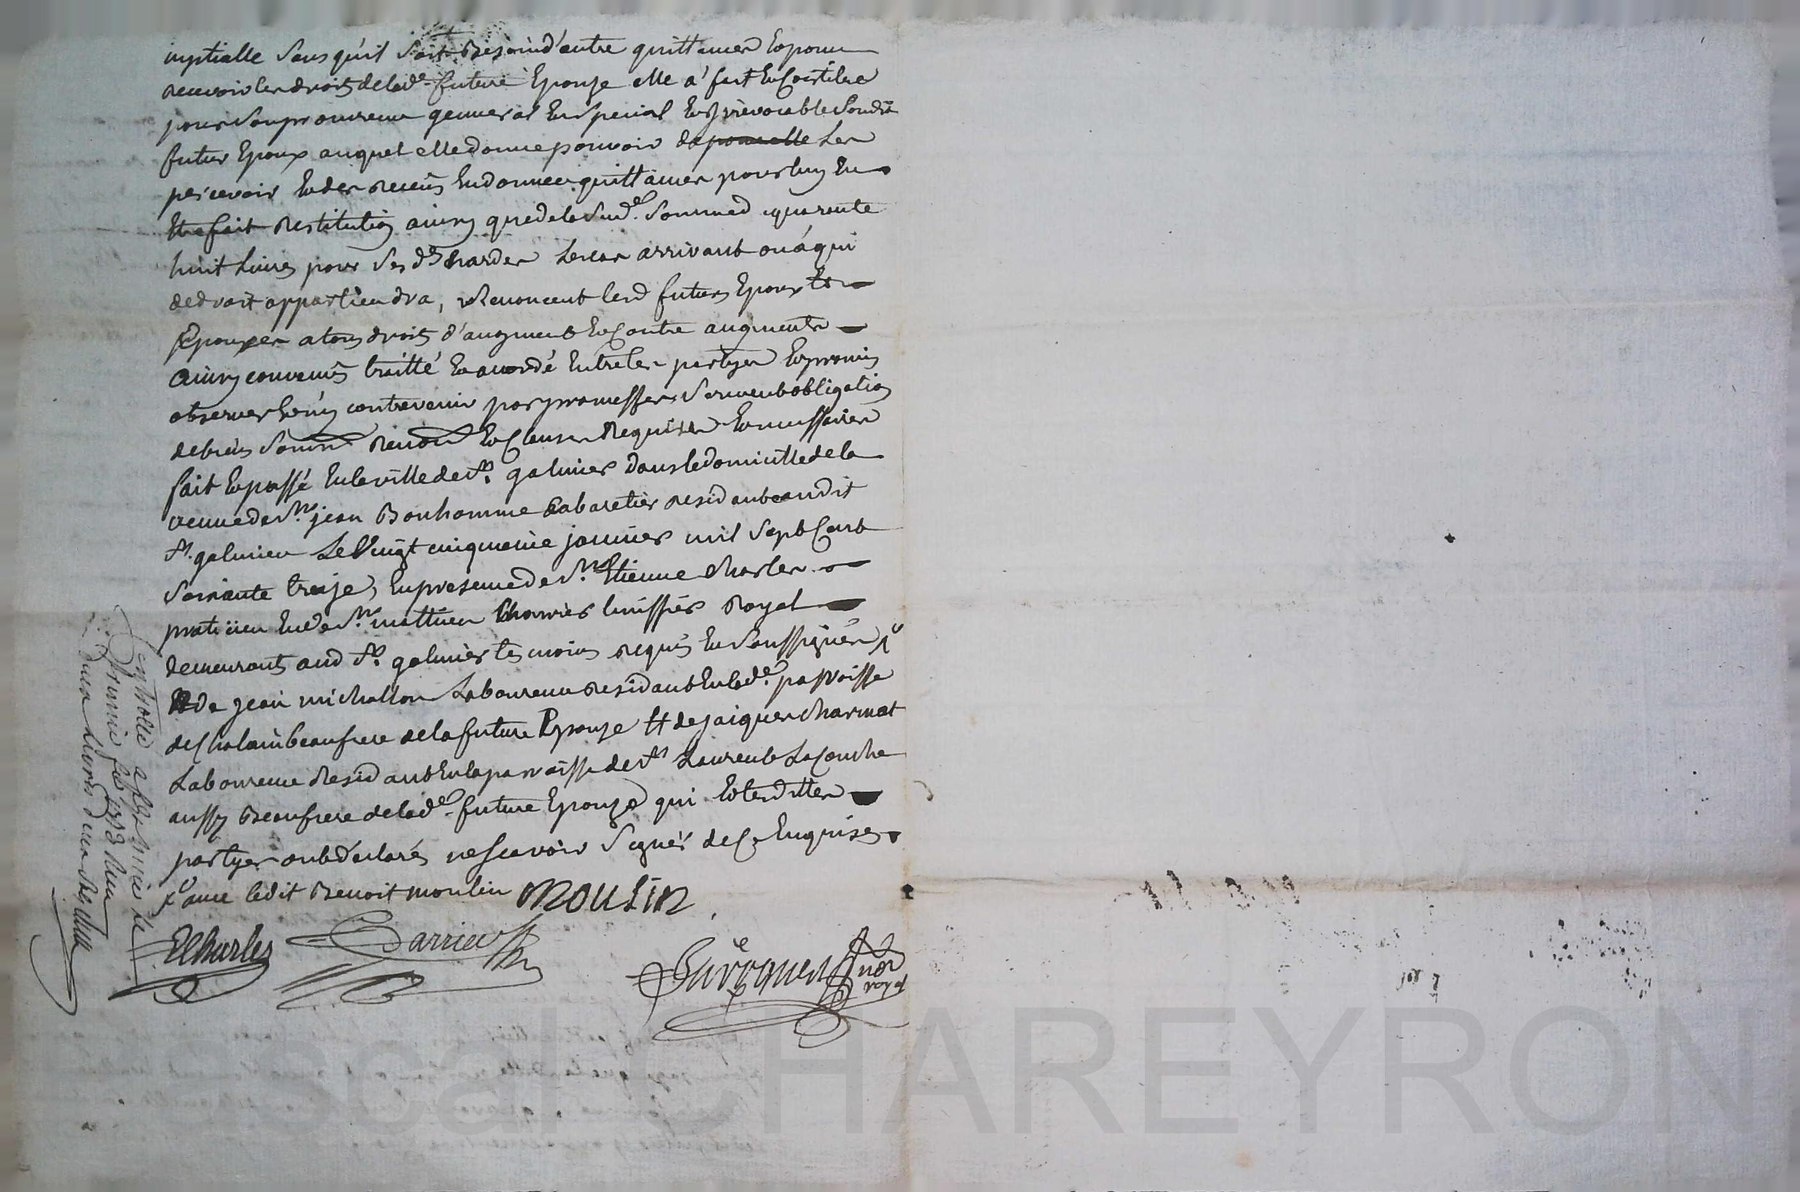 nuptialle sans qu'il soit besoin d'autre quittance Et pour
recevoir les droits de lad.e future Epouze elle a fait Et Constitue
pour son procureur general En special Et Irrevocable sondit
futur Epoux auquel elle donne pouvoir de les
percevoir Et des reçeus En donner quittances pour luy En
Etre fait restitution ainsy que de la susd.e somme de quarente
huit livres pour ses d.s hardes le cas arrivant ou a qui
de droit appartiendra, Renoncent lesd futurs Epoux Et
Epouzes a tous droits d'augment Et Contre augment
Ainsy convenus traitté Et accordé Entre les partyes Et promis
observer Et n'y contrevenir par promesses serment obligation
de biens soum.n renon.n Et Clauses Requises Et necessaires
fait Et passé En la ville de s.t galmier dans le domicille de la
veuve de s.r jean Bonhomme Cabaretier residante audit
s.t galmier Le Vingt cinquieme janvier mil sept Cent
soixante treize, En presence de s.r Etienne Charles
praticien Et de s.r mathieu huissier Royal
demeurants aud s.t galmier temoins requis Et soussignés
de jean michallon Laboureur residant En lad.e parroisse
de Chalain beaufrere de la future Epouze Et de jaiques Charmat
Laboureur Residant En la parroisse de s.t Laurent La Conche
aussy Beaufrere de lad.e future Epouze qui Et lesdittes
partyes ont déclarés ne scavoir signer de Ce Enquises
avec ledit Benoit moulin MOULIN
ECharles
not.re royal
Controllé a st galmier le
janvier 1773 Reçu
Pascal CHAREYRON